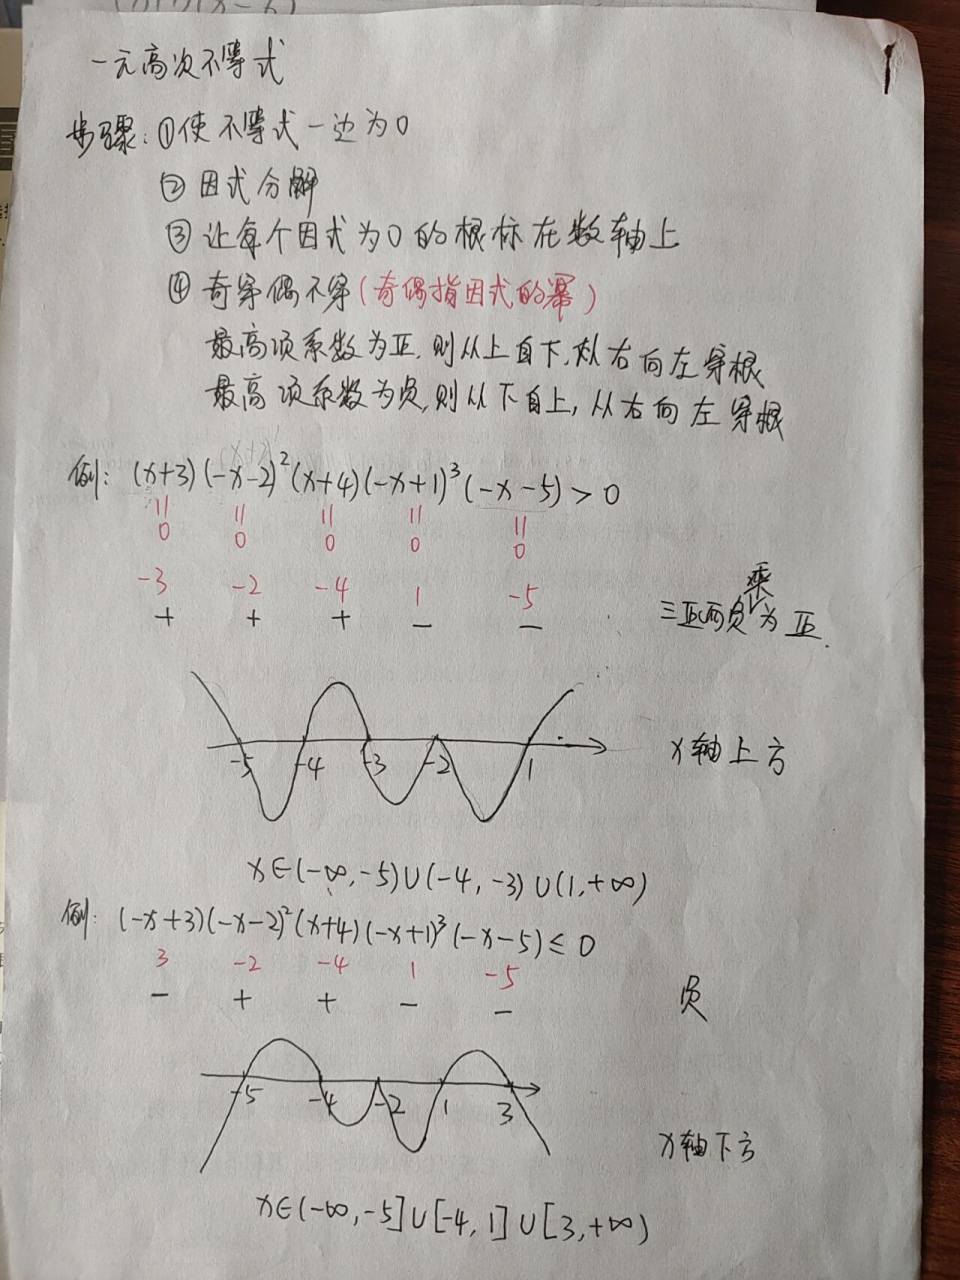 一元高次不等式
步骤:①使不等式一边为0
②因式分解
③让每个因式为0的根标在数轴上
④奇穿偶不穿(奇偶指因式的幂)
最高项系数为正,则从上自下,从右向左穿根
最高项系数为负,则从下自上,从右向左穿根
例: (x+3)(-x-2)²(x+4)(-x+1)³(-x-5)>0
|| || || || ||
0 0 0 0 0
-3 -2 -4 1 -5
+ + + - - 三正两负乘为正.
-5 -4 -3 -2 1 x轴上方
x∈(-∞,-5)∪(-4,-3)∪(1,+∞)
例: (-x+3)(-x-2)²(x+4)(-x+1)³(-x-5)≤0
3 -2 -4 1 -5
- + + - - 负
-5 -4 -2 1 3
x轴下方
x∈(-∞,-5]∪[-4,1]∪[3,+∞)